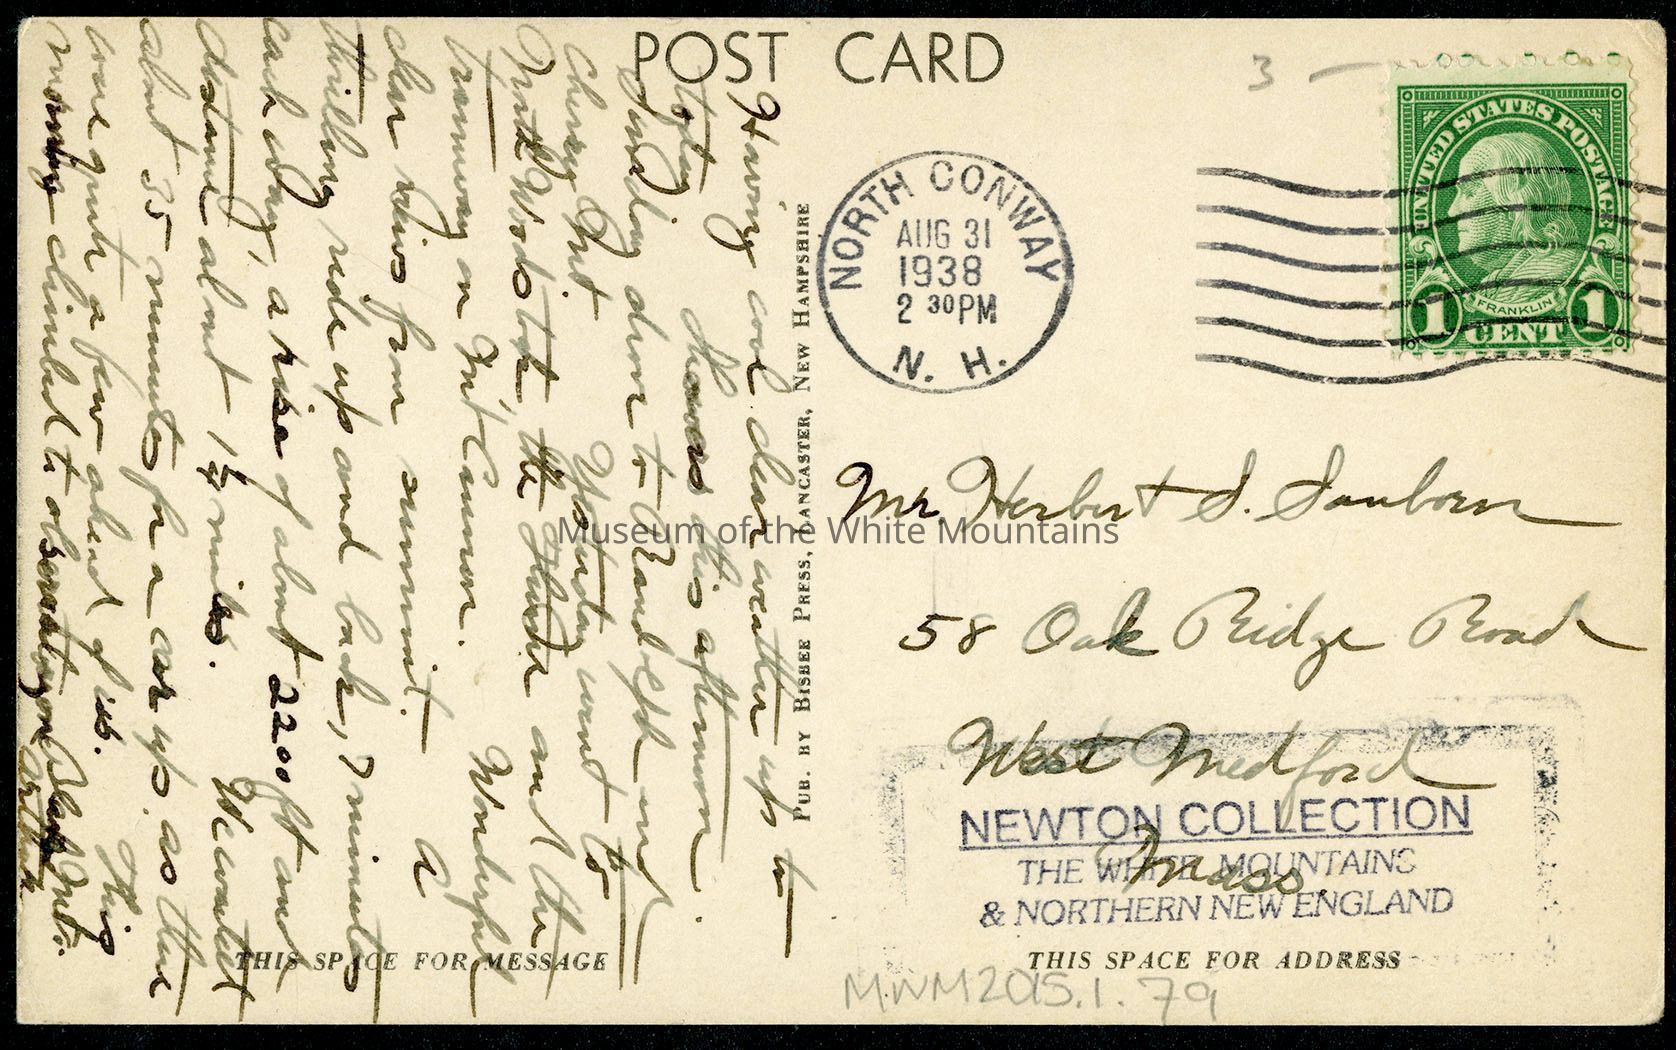 POST CARD
3 -
NORTH CONWAY
AUG 31
1938
2 30PM
N. H.
UNITED STATES POSTAGE
FRANKLIN
1 CENT 1
Having cool clear weather up to
today showers this afternoon.
Sunday drove to Randolph and
Cherry Mt. Yesterday went to
Twin
Tramway on Mt Cannon. Wonderful
clear views from summit. A
thrilling ride up and back, 7 minutes
each way, a rise of about 2200 ft and
distance about 1 miles. We waited
about 35 minutes for a car up as there
were quite a few ahead of us. This
morning climbed to observatory on Black Mt.
Arthur
PUB. BY BISBEE PRESS, LANCASTER, NEW HAMPSHIRE
Mr Herbert S. Sanborn
58 Oak Ridge Road
West Medford
Mass.
NEWTON COLLECTION
THE WHITE MOUNTAINS
& NORTHERN NEW ENGLAND
THIS SPACE FOR MESSAGE
THIS SPACE FOR ADDRESS
MWM2015.1.79
Museum of the White Mountains